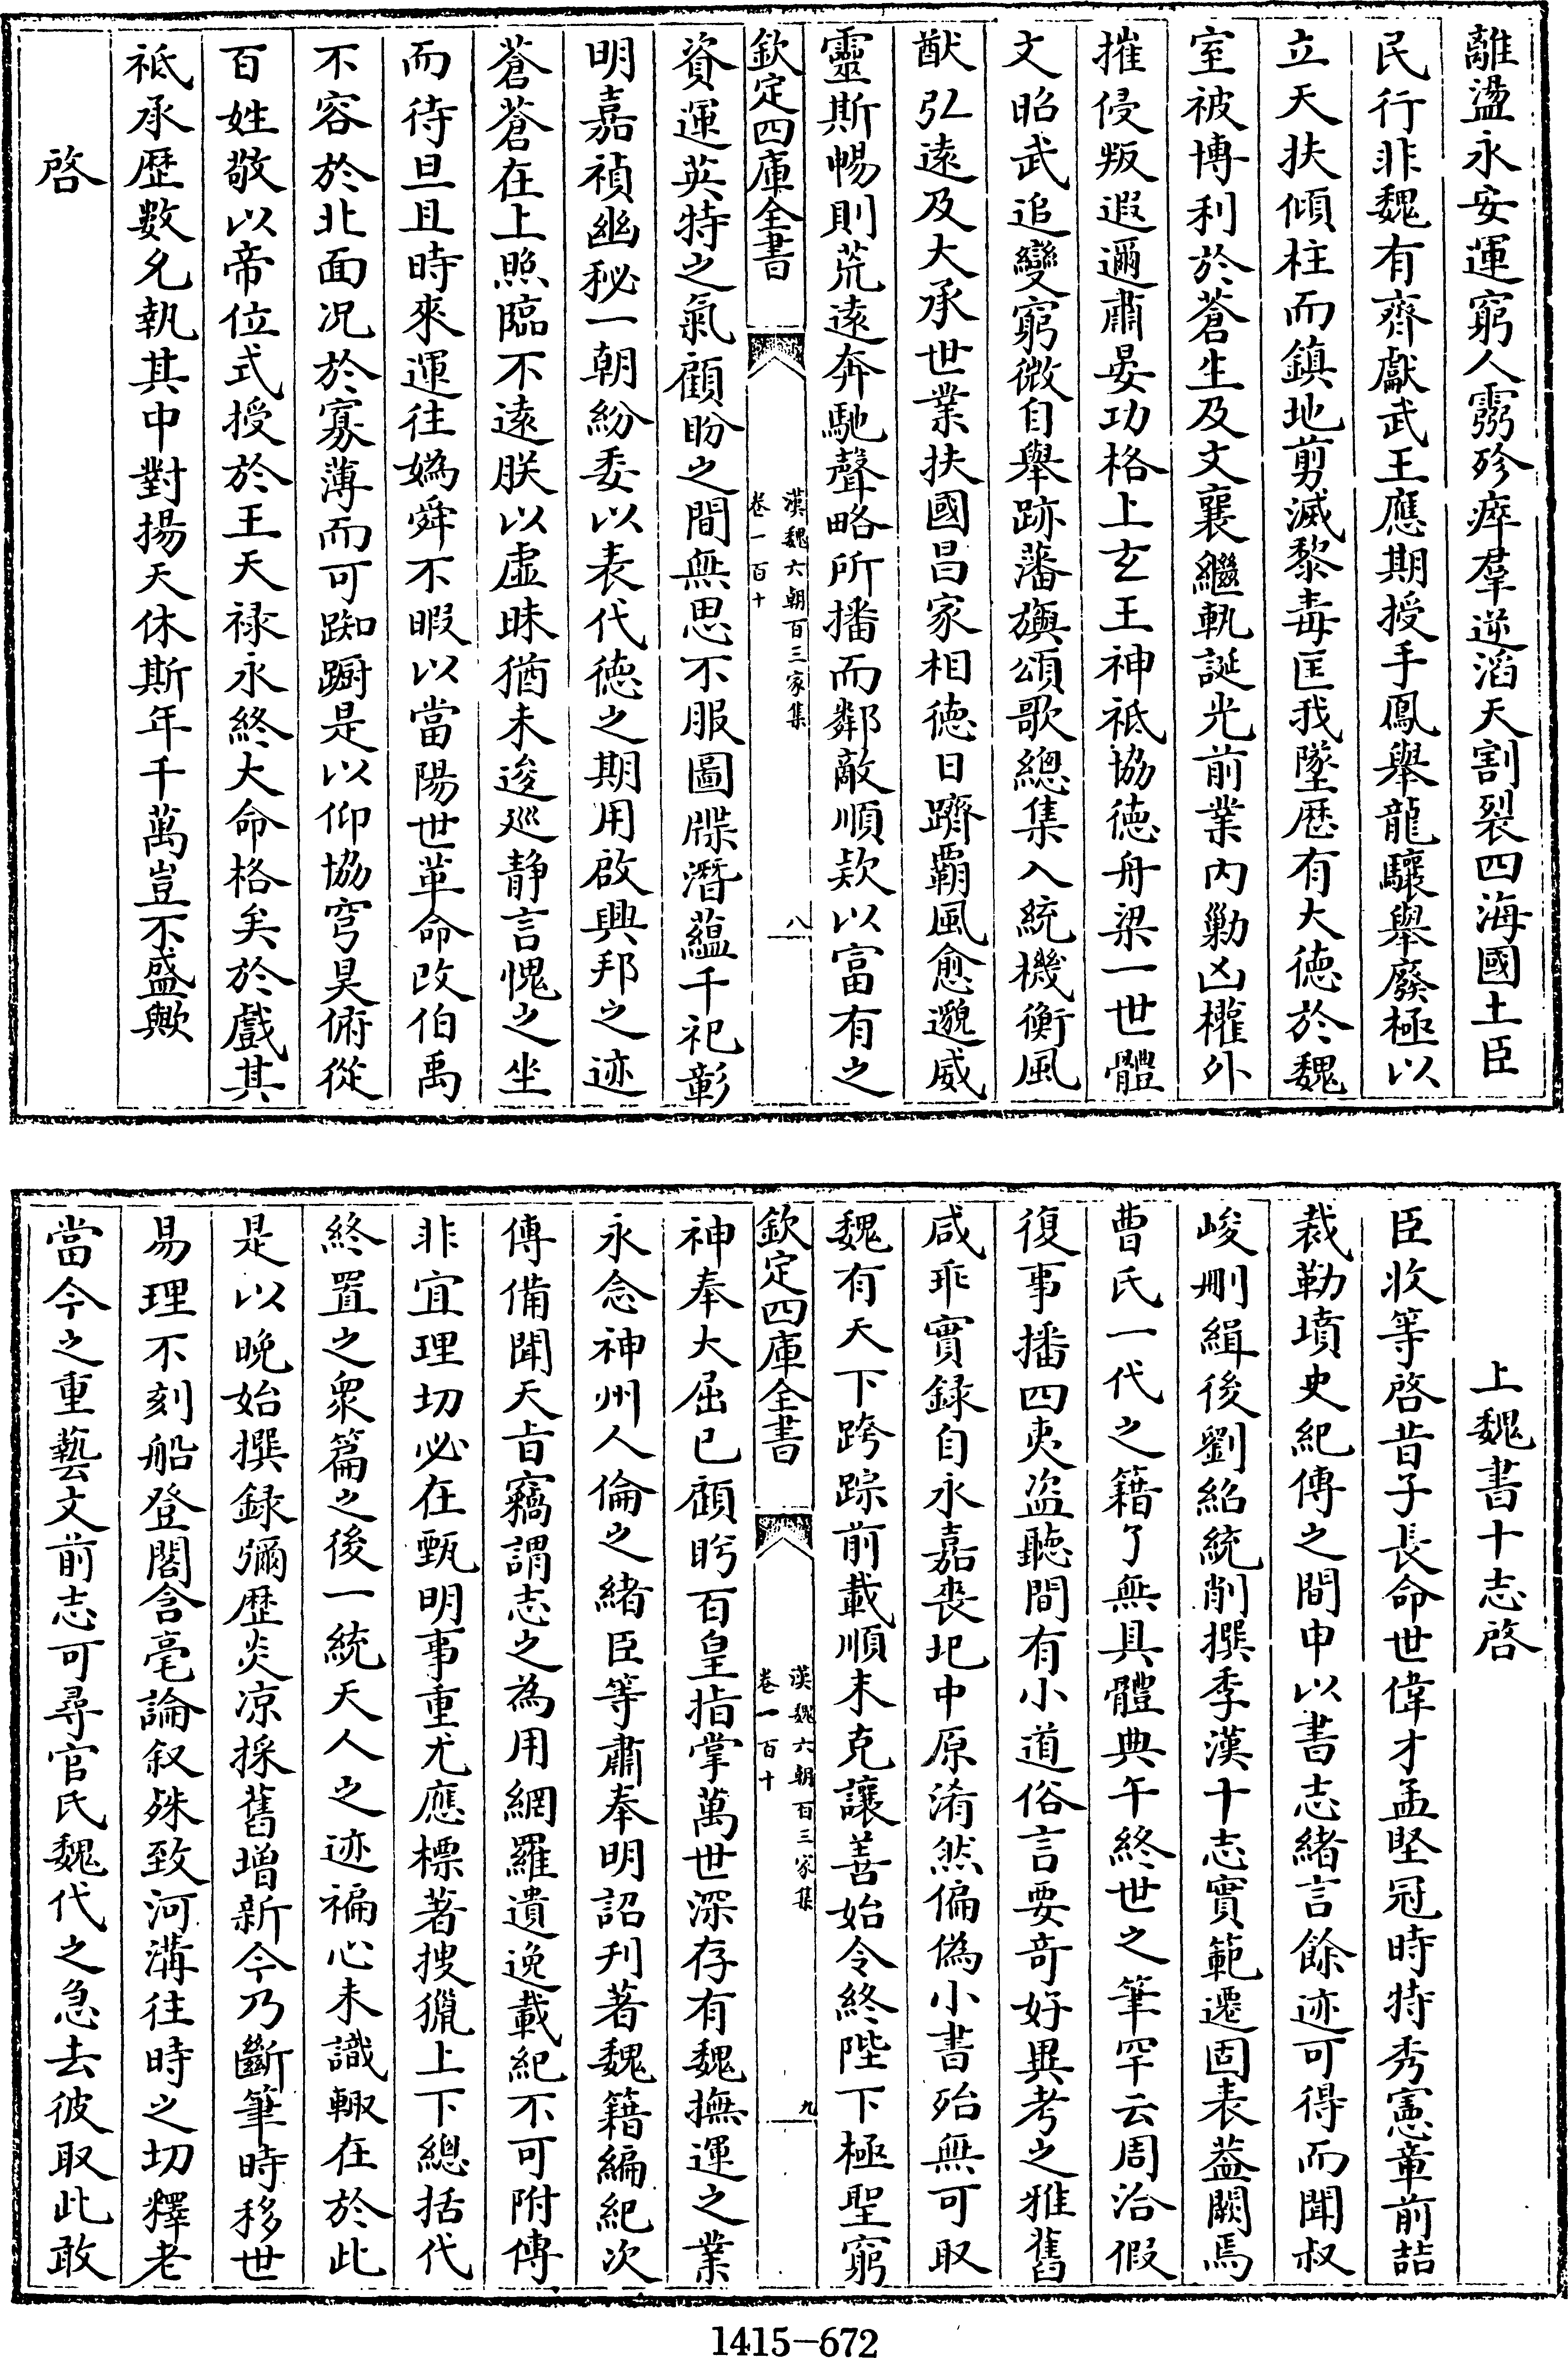 離盪永安運窮人霛殄瘁羣逆滔天割裂四海國土臣
民行非魏有齊獻武王應期授手鳳舉龍驤舉廢極以
立天扶傾柱而鎮地剪滅黎毒匡我墜歴有大徳於魏
室被博利於蒼生及文襄繼軌誕光前業内勦凶權外
摧侵叛遐邇肅晏功格上玄王神祗協徳舟梁一世體
文昭武追變窮微自舉跡藩旟頌歌總集入統機衡風
猷弘遠及大承世業扶國昌家相徳日躋覇風愈邈威
靈斯暢則荒遠奔馳聲略所播而鄰敵順欵以富有之
欽定四庫全書
漢魏六朝百三家集
卷一百十
八
資運英特之氣顧盼之間無思不服圖牒潛藴千祀彰
明嘉禎幽秘一朝紛委以表代徳之期用啟興邦之迹
蒼蒼在上照臨不遠朕以虛昧猶未逡巡静言愧之坐
而待旦且時來運往嬀舜不暇以當陽世革命改伯禹
不容於北面况於寡薄而可踟蹰是以仰協穹昊俯從
百姓敬以帝位式授於王天禄永終大命格矣於戲其
祗承歴數允執其中對揚天休斯年千萬豈不盛歟
啓
上魏書十志啓
臣收等啓昔子長命世偉才孟堅冠時特秀憲章前喆
裁勒墳史紀傳之間申以書志緒言餘迹可得而聞叔
峻刪緝後劉紹統削撰季漢十志實範遷固表葢闕焉
曹氏一代之籍了無具體典午終世之筆罕云周洽假
復事播四夷盜聽間有小道俗言要竒好異考之雅舊
咸乖實録自永嘉喪圮中原淆然偏偽小書殆無可取
魏有天下跨踪前載順末克讓善始令終陛下極聖窮
欽定四庫全書
漢魏六朝百三家集
卷一百十
九
神奉大屈已顧眄百皇指掌萬世深存有魏撫運之業
永念神州人倫之緒臣等肅奉明詔刋著魏籍編紀次
傳備聞天㫖竊謂志之為用網羅遺逸載紀不可附傳
非宜理切必在甄明事重尤應標著搜獵上下總括代
終置之衆篇之後一統天人之迹褊心未識輙在於此
是以晚始撰録彌歴炎凉採舊增新今乃斷筆時移世
易理不刻船登閣含毫論叙殊致河溝往時之切釋老
當今之重藝文前志可尋官氏魏代之急去彼取此敢
1415-672